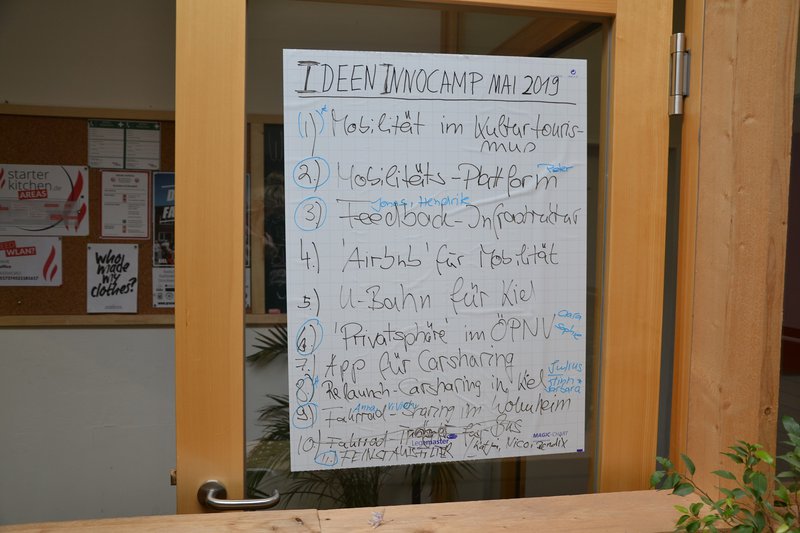 IDEEN INNOCAMP MAI 2019
1.) Mobilität im Kulturtouris-
mus
2.) Mobilitäts-Plattform Peter
Jonas, Hendrike
3.) Feedback-Infrastruktur
4.) 'Airbnb' für Mobilität
5.) U-Bahn für Kiel
6.) 'Privatsphäre' im ÖPNV Clara
Sophie
7.) App für Carsharing
8.) Relaunch-Carsharing in Kiel Julius
Finn +
Barbara
Anna
9.) Fahrrad-Sharing im Wohnheim
10.) Fahrrad für Bus
Legamaster MAGIC-CHART
11.) FEINSTAUBFILTER
starter
kitchen.de
AREAS
WLAN?
who
made
my
clothes?